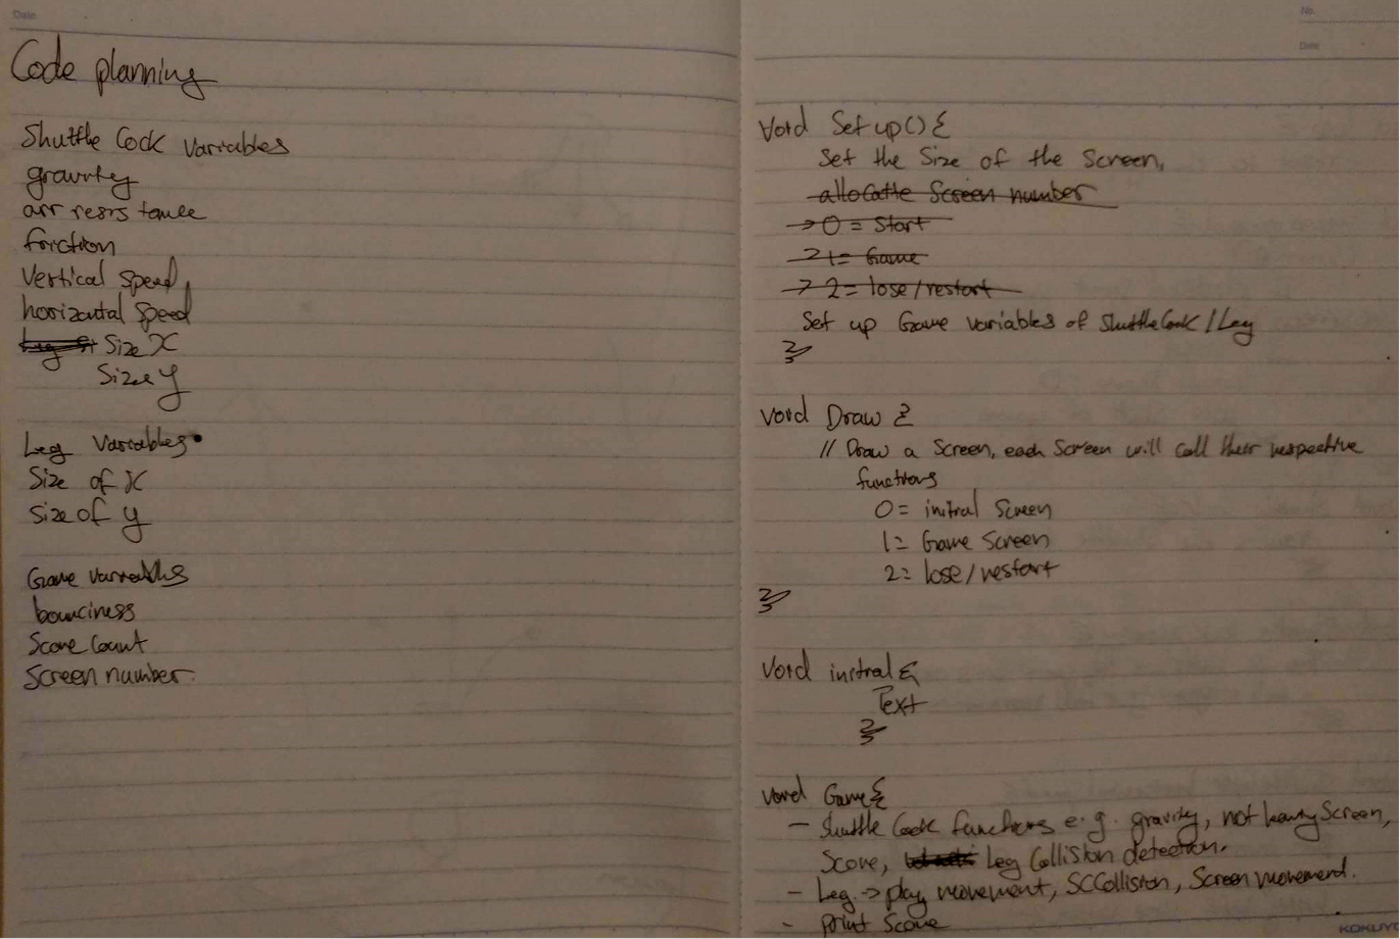 Date
Code planning
Shuttle Cock Variables
gravity
air resistance
friction
Vertical Speed,
horizontal speed
Leg Size X
Size y
Leg Variables
Size of X
Size of y
Game Variables
bounciness
Score Count
Screen number
No.
Date
Void Setup(){
Set the Size of the Screen,
allocatte Screen number
→ 0 = Start
→ 1 = Game
→ 2 = lose/restart
Set up Game variables of ShuttleCock / Leg
}
void Draw {
// Draw a Screen, each Screen will call their respective
functions
0 = initial Screen
1 = Game Screen
2 = lose/restart
}
Void initial {
Text
}
void Game {
- Shuttle Cock functions e.g. gravity, not leaving Screen,
Score, Leg Collision detection.
- Leg → play movement, SCCollision, Screen movement.
- Print Score
KOKUYO